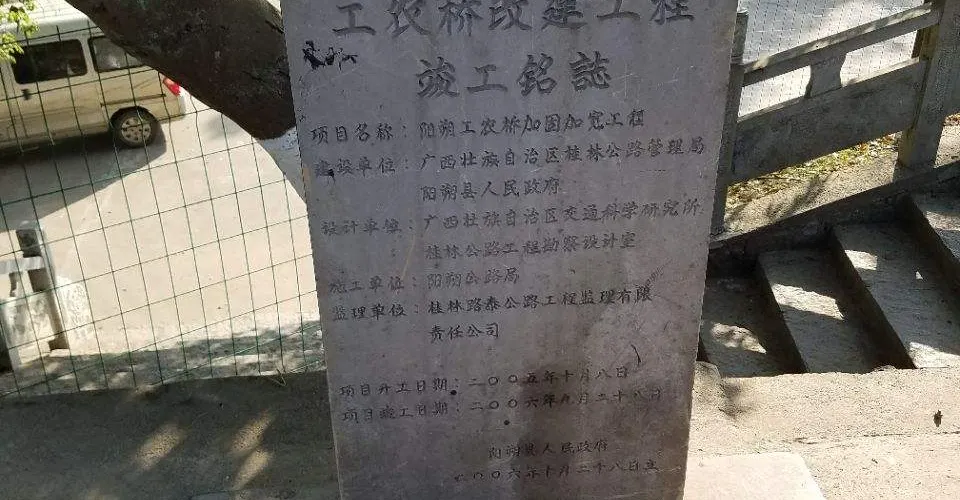 工农桥改建工程
竣工銘誌
项目名称：阳朔工农桥加固加宽工程
建设单位：广西壮族自治区桂林公路管理局
阳朔县人民政府
设计单位：广西壮族自治区交通科学研究所
桂林公路工程勘察设计室
施工单位：阳朔公路局
监理单位：桂林路泰公路工程监理有限
责任公司
项目开工日期：二〇〇五年十月八日
项目竣工日期：二〇〇六年九月二十八日
阳朔县人民政府
二〇〇六年十月二十八日立